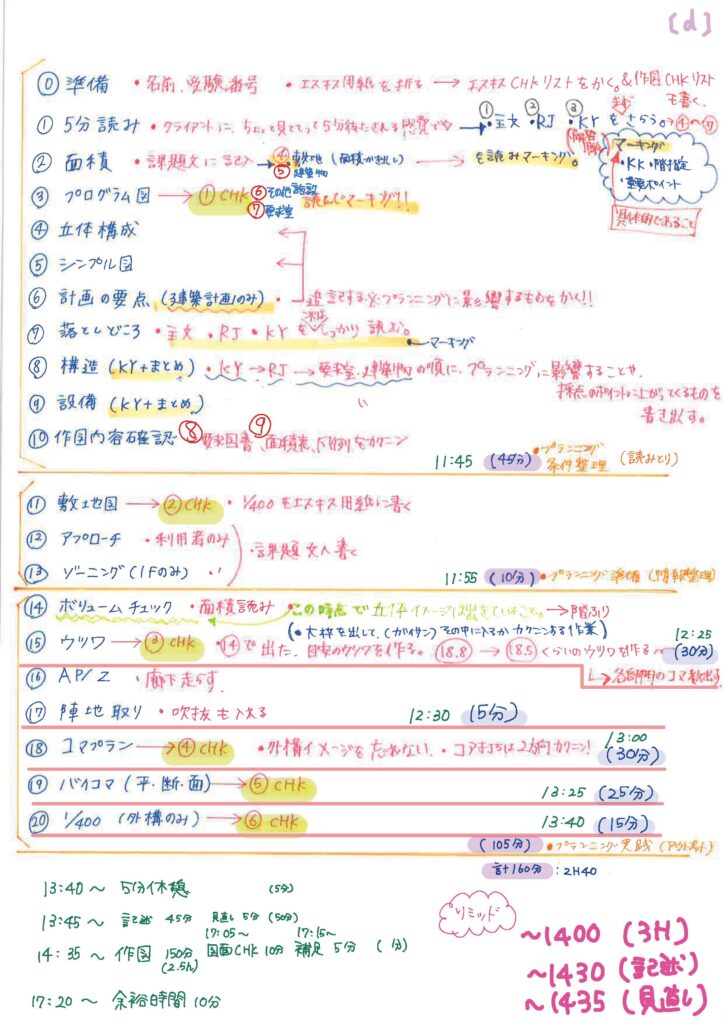 [d]
⓪ 準備 ・名前、受験番号 ・エスキス用紙を折る → エスキスCHKリストをかく。&作図CHKリストも書く。
① 5分読み ・クライアントに、ちょっと見てって5分待たされる感覚で → ①・主文 ②・RJ ③・KY をまずさらう。④〜⑦
② 面積 ・課題文に記入 → ④敷地 (面積かき出し) → を読みマーキング。
⑤建築物
マーキング
・KK・階指定
・重要ポイント
具体的であること
③ プログラム図 → ① CHK ⑥その他施設 ⑦要求室 読んでマーキング!!
④ 立体構成
⑤ シンプル図
⑥ 計画の要点 (3建築計画のみ) ・追記する。※プランニングに影響するものをかく!!
⑦ 落としどころ ・主文 ・RJ ・KY 次はしっかり読む。
マーキング
⑧ 構造 (KY+まとめ) ・KY→RJ→要求室・建築物の順に、プランニングに影響することや、
採点のポイントに上がってくるものを
書き出す。
⑨ 設備 (KY+まとめ) 〃
⑩ 作図内容確認 ⑧要求図書、⑨面積表、凡例をカクニン
11:45 (45分) ・プランニング条件整理 (読みとり)
⑪ 敷地図 → ② CHK ・1/400をエスキス用紙に書く
⑫ アプローチ ・利用者のみ
・課題文へ書く
⑬ ゾーニング(1Fのみ) 〃
11:55 (10分) ・プランニング準備 (情報整理)
⑭ ボリュームチェック ・面積読み ・この時点で立体イメージは出きていること。→階ふり
(・大枠を出して、(ガイサン)その中に入るかカクニンする作業)
⑮ ウツワ → ③ CHK ・⑭で出た、目安のウツワを作る。18.8 → 18.5 くらいのウツワを作る〜 12:25 (30分)
→各部門のコマ数出す
⑯ AP/Z ・廊下走らす。
⑰ 陣地取り ・吹抜も入れる 12:30 (5分)
⑱ コマプラン → ④ CHK ・外構イメージを忘れない。・コア打ちは2方向カクニン! 13:00 (30分)
⑲ バイコマ (平・断・面) → ⑤ CHK 13:25 (25分)
⑳ 1/400 (外構のみ) → ⑥ CHK 13:40 (15分)
(105分) ・プランニング実践 (アウトプット)
計160分:2H40
13:40〜 5分休憩 (5分)
13:45〜 記述 45分 見直し5分 (50分)
17:05〜 17:15〜
14:35〜 作図 150分 図面CHK 10分 補足 5分 ( 分)
(2.5h)
17:20〜 余裕時間 10分
リミッド
〜1400 (3H)
〜1430 (記述)
〜1435 (見直し)